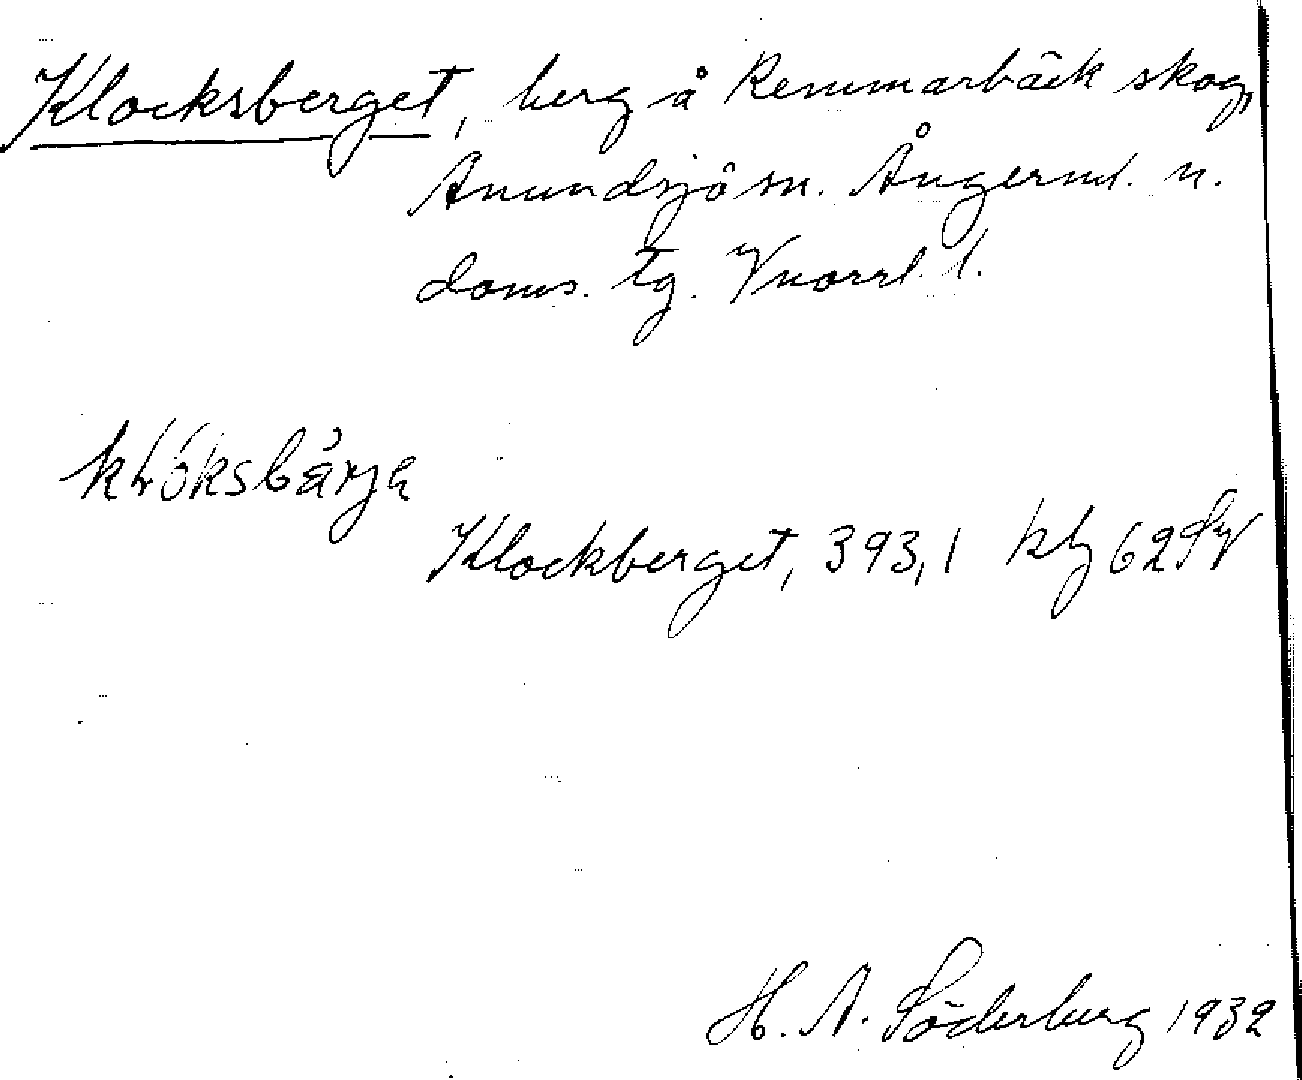 Klocksberget, berg å Remmarbäck skog,
Anundsjö sn. Ångerml. n.
doms. tg. Vnorrl. l.
Klockberget, 393,1 kbl 62 SV
H. A. Söderberg 1932